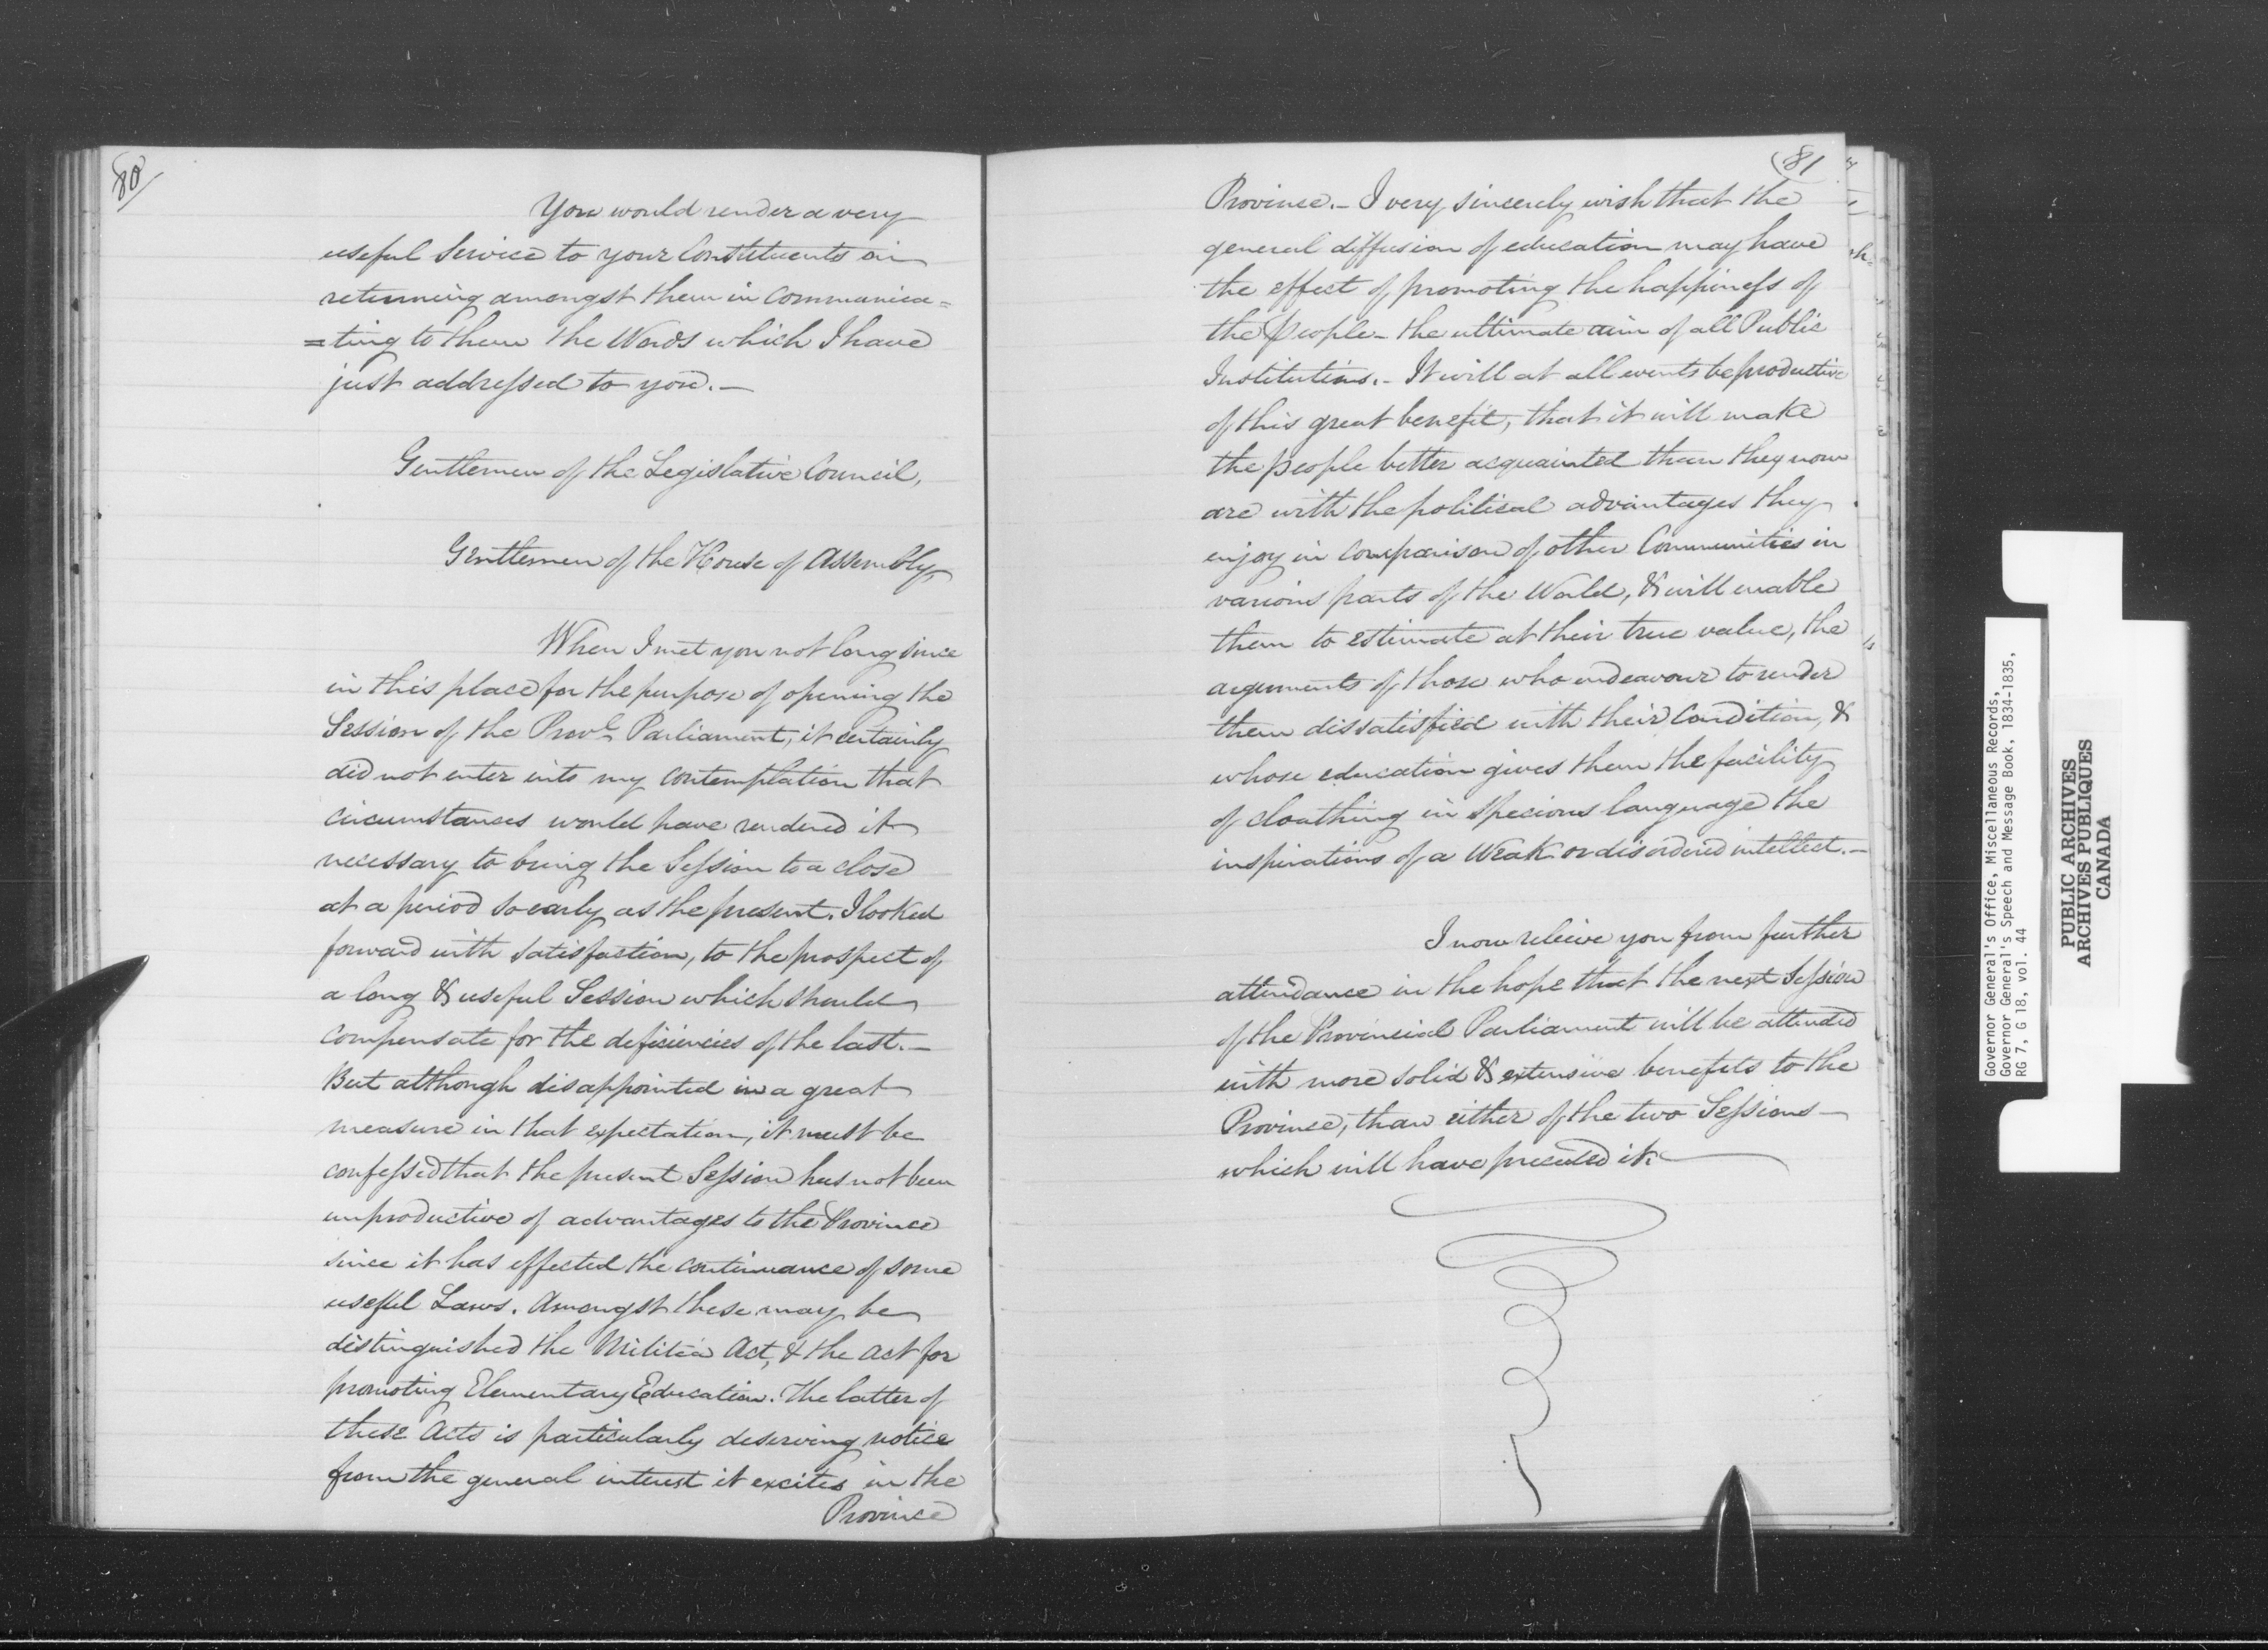 80
You would render a very
useful Service to your Constituents on
returning amongst them in Communica=
=ting to them the Words which I have
just addressed to you.—
Gentlemen of the Legislative Council,
Gentlemen of the House of Assembly,
When I met you not long since
in this place for the purpose of opening the
Session of the Provl. Parliament, it certainly
did not enter into my contemplation that
circumstances would have rendered it
necessary to bring the Session to a close
at a period so early as the present. I looked
forward with satisfaction, to the prospect of
a long & useful Session which should
compensate for the deficiencies of the last.—
But although disappointed in a great
measure in that expectation, it must be
confessed that the present Session has not been
unproductive of advantages to the Province
since it has effected the continuance of some
useful Laws. Amongst these may be
distinguished the Militia Act, & the Act for
promoting Elementary Education. The latter of
these Acts is particularly deserving notice
from the general interest it excites in the
Province
81
Province.— I very sincerely wish that the
general diffusion of education may have
the effect of promoting the happiness of
the People— the ultimate aim of all Public
Institutions.— It will at all events be productive
of this great benefit, that it will make
the people better acquainted than they now
are with the political advantages they
enjoy in comparison of other Communities in
various parts of the World, & will enable
them to estimate at their true value, the
arguments of those who endeavour to render
them dissatisfied with their Condition, &
whose education gives them the facility
of cloathing in specious language the
inspirations of a weak or disordered intellect.—
I now relieve you from further
attendance in the hope that the next Session
of the Provincial Parliament will be attended
with more solid & extensive benefits to the
Province, than either of the two Sessions—
which will have preceded it.
Governor General's Office, Miscellaneous Records,
Governor General's Speech and Message Book, 1834-1835,
RG 7, G 18, vol. 44
PUBLIC ARCHIVES
ARCHIVES PUBLIQUES
CANADA